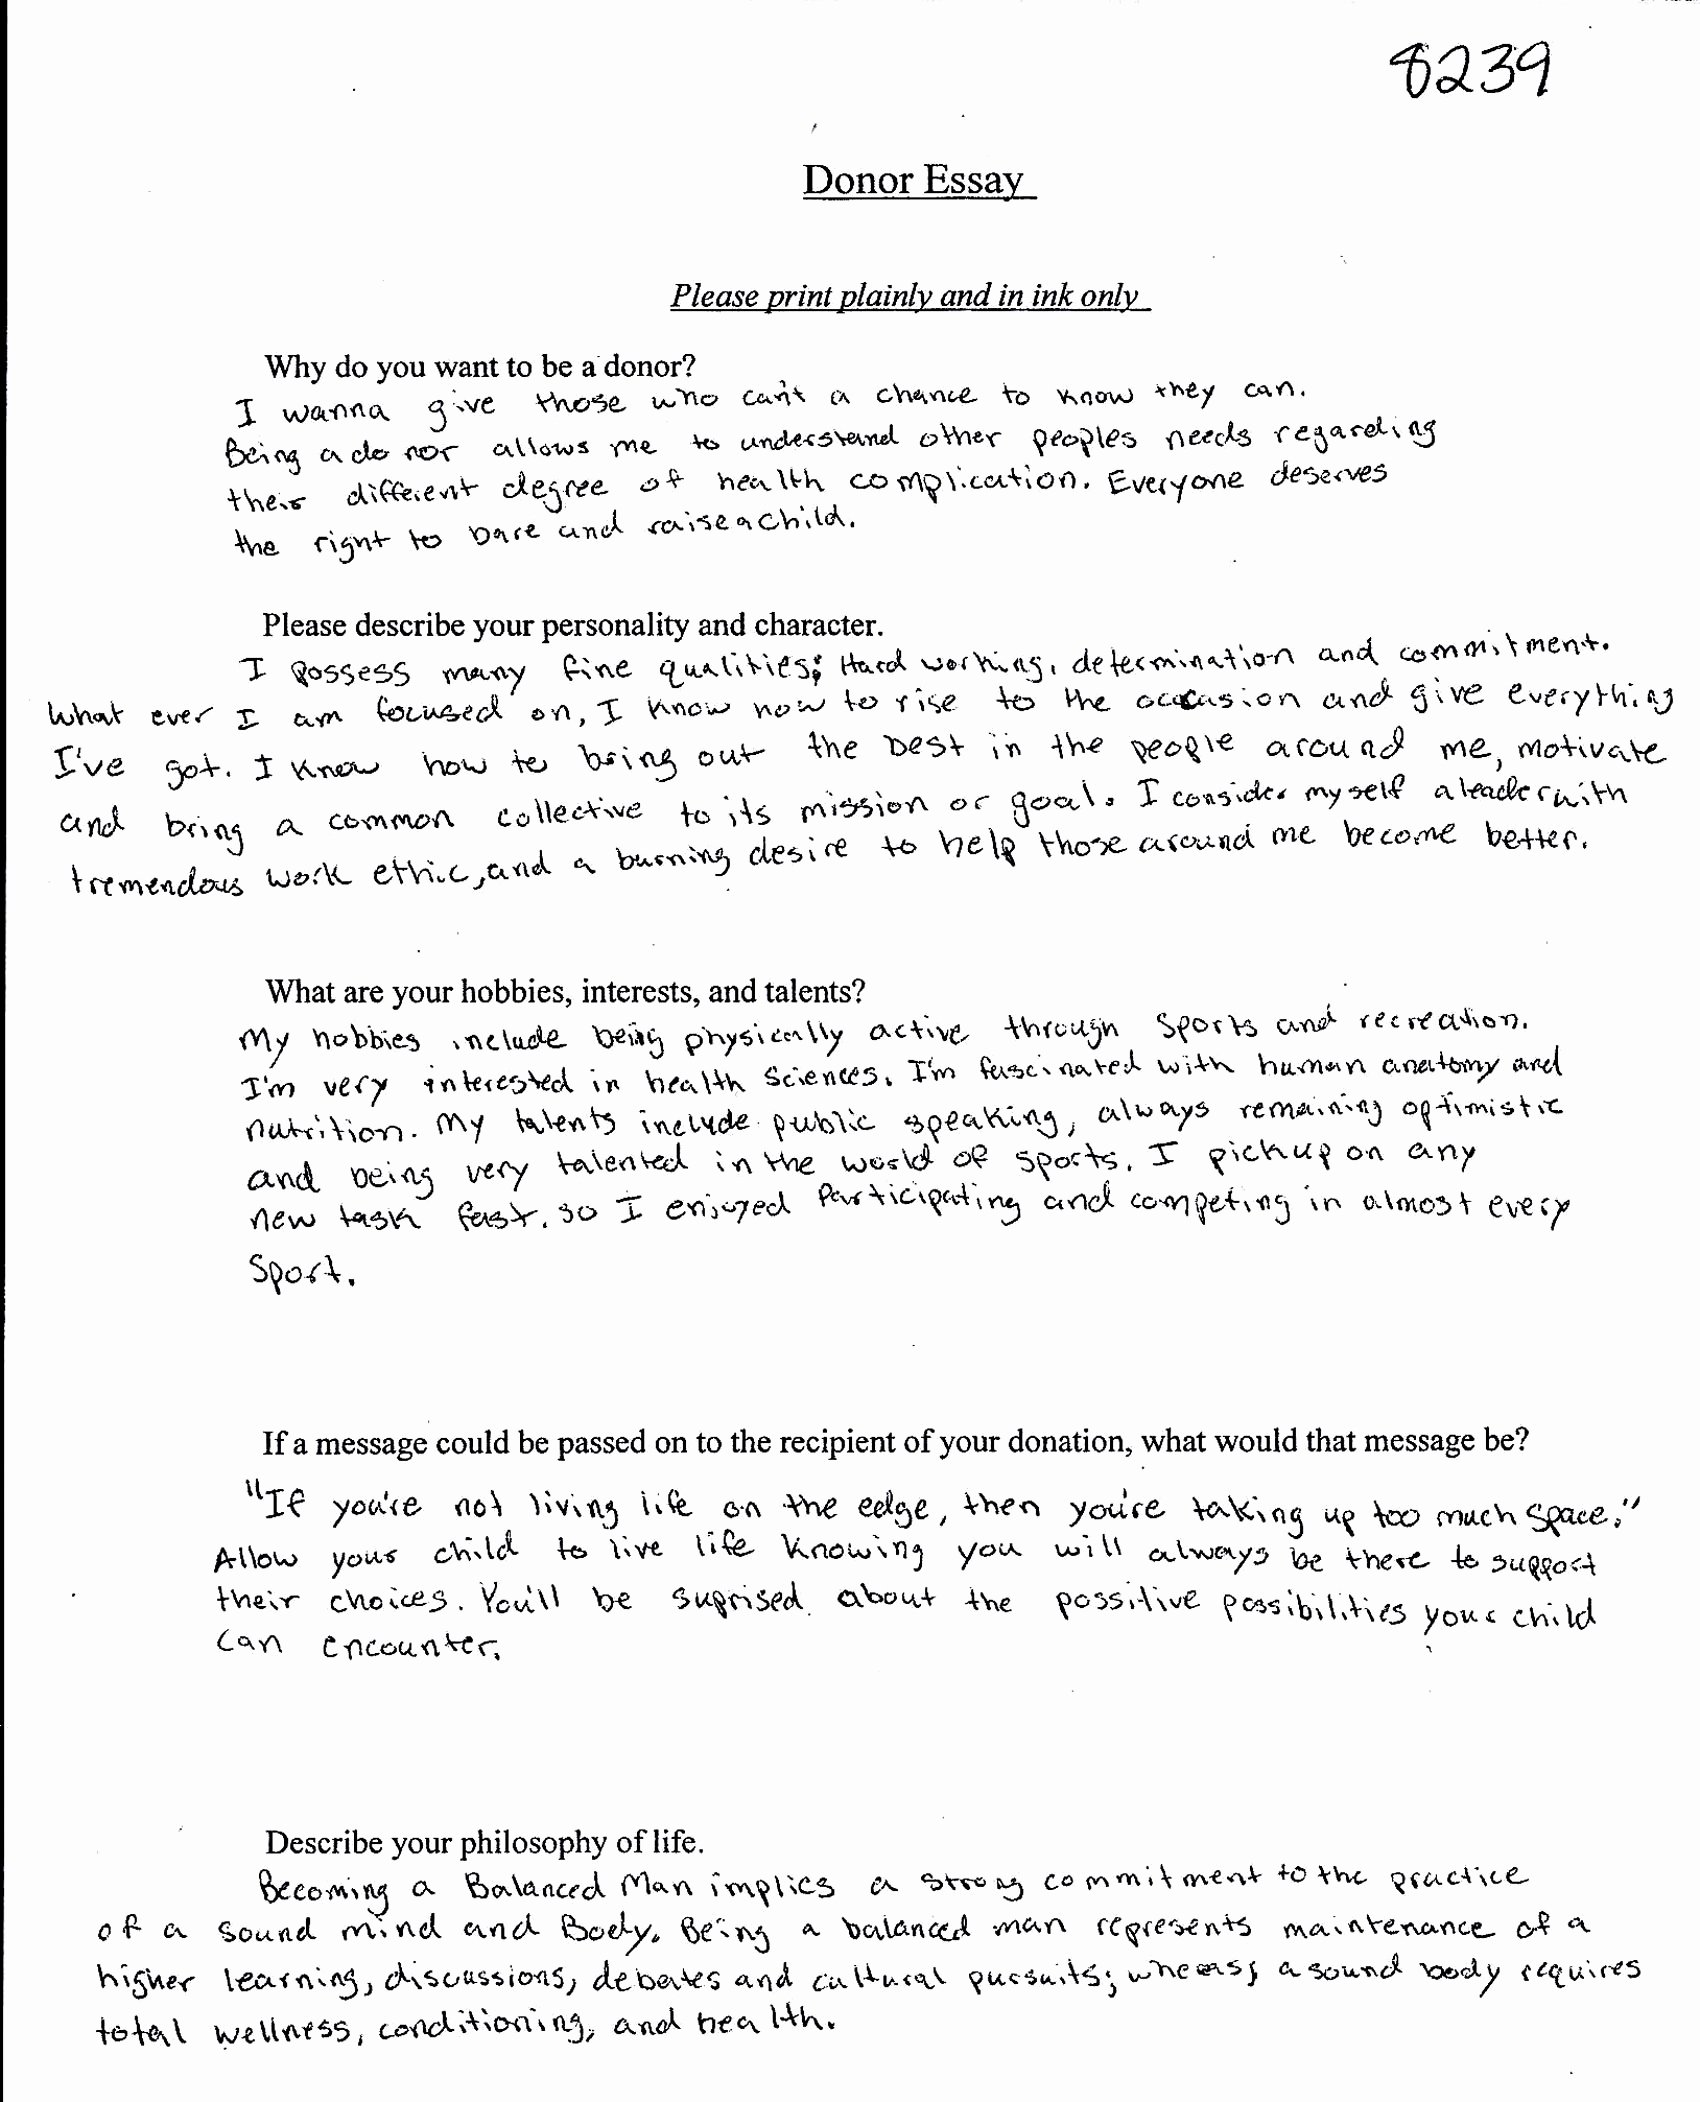 8239
Donor Essay
Please print plainly and in ink only
Why do you want to be a donor?
I wanna give those who can't a chance to know they can.
Being a donor allows me to understand other peoples needs regarding
their different degree of health complication. Everyone deserves
the right to bare and raise a child.
Please describe your personality and character.
I possess many fine qualities; Hard working, determination and commitment.
What ever I am focused on, I know how to rise to the occasion and give everything
I've got. I know how to bring out the best in the people around me, motivate
and bring a common collective to its mission or goal. I consider myself a leader with
tremendous work ethic, and a burning desire to help those around me become better.
What are your hobbies, interests, and talents?
My hobbies include being physically active through sports and recreation.
I'm very interested in health sciences. I'm fascinated with human anatomy and
nutrition. My talents include public speaking, always remaining optimistic
and being very talented in the world of sports. I pick up on any
new task fast. so I enjoyed participating and competing in almost every
Sport.
If a message could be passed on to the recipient of your donation, what would that message be?
"If you're not living life on the edge, then you're taking up too much space."
Allow your child to live life knowing you will always be there to support
their choices. You'll be suprised about the possitive possibilities your child
can encounter.
Describe your philosophy of life.
Becoming a Balanced Man implies a strong commitment to the practice
of a sound mind and Body. Being a balanced man represents maintenance of a
higher learning, discussions, debates and cultural pursuits; wheras, a sound body requires
total wellness, conditioning, and health.